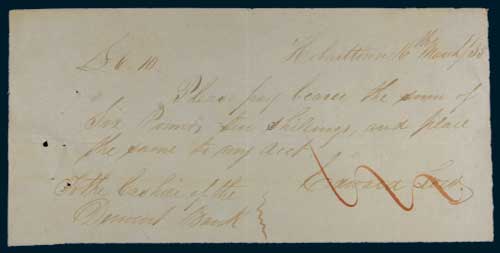 Hobarttown 16th March
£6. 10.
Please pay bearer the sum of
Six Pounds ten shillings, and place
the same to my acct
Edward Lord
To the Cashier of the
Derwent Bank